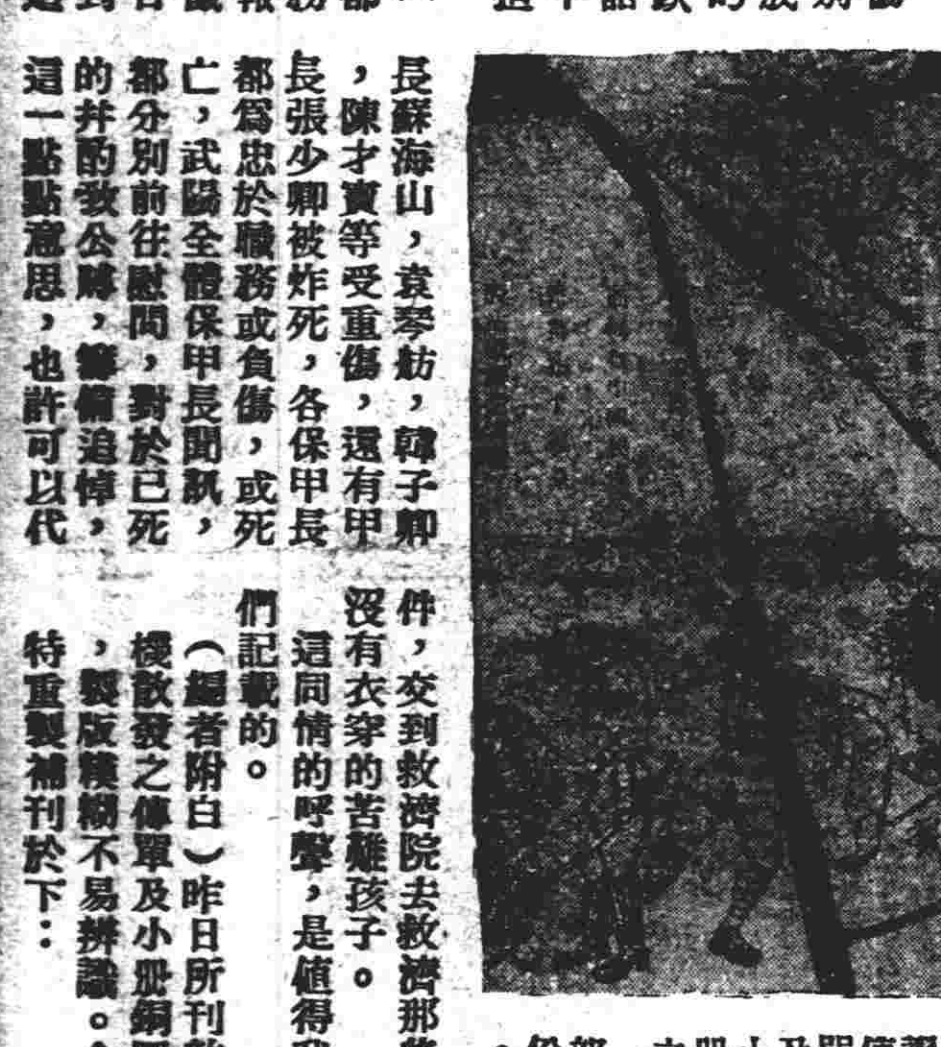 長蘇海山，袁琴舫，韓子卿
，陳才寶等受重傷，還有甲
長張少卿被炸死，各保甲長
都爲忠於職務或負傷，或死
亡，武陽全體保甲長聞訊，
都分別前往慰問，對於已死
的并酌致公賻，籌備追悼，
這一點點意思，也許可以代
件，交到救濟院去救濟那
沒有衣穿的苦難孩子。
這同情的呼聲，是値得
們記載的。
（編者附白）昨日所刊
機散發之傳單及小册銅
，製版模糊不易辨識。
特重製補刊於下：